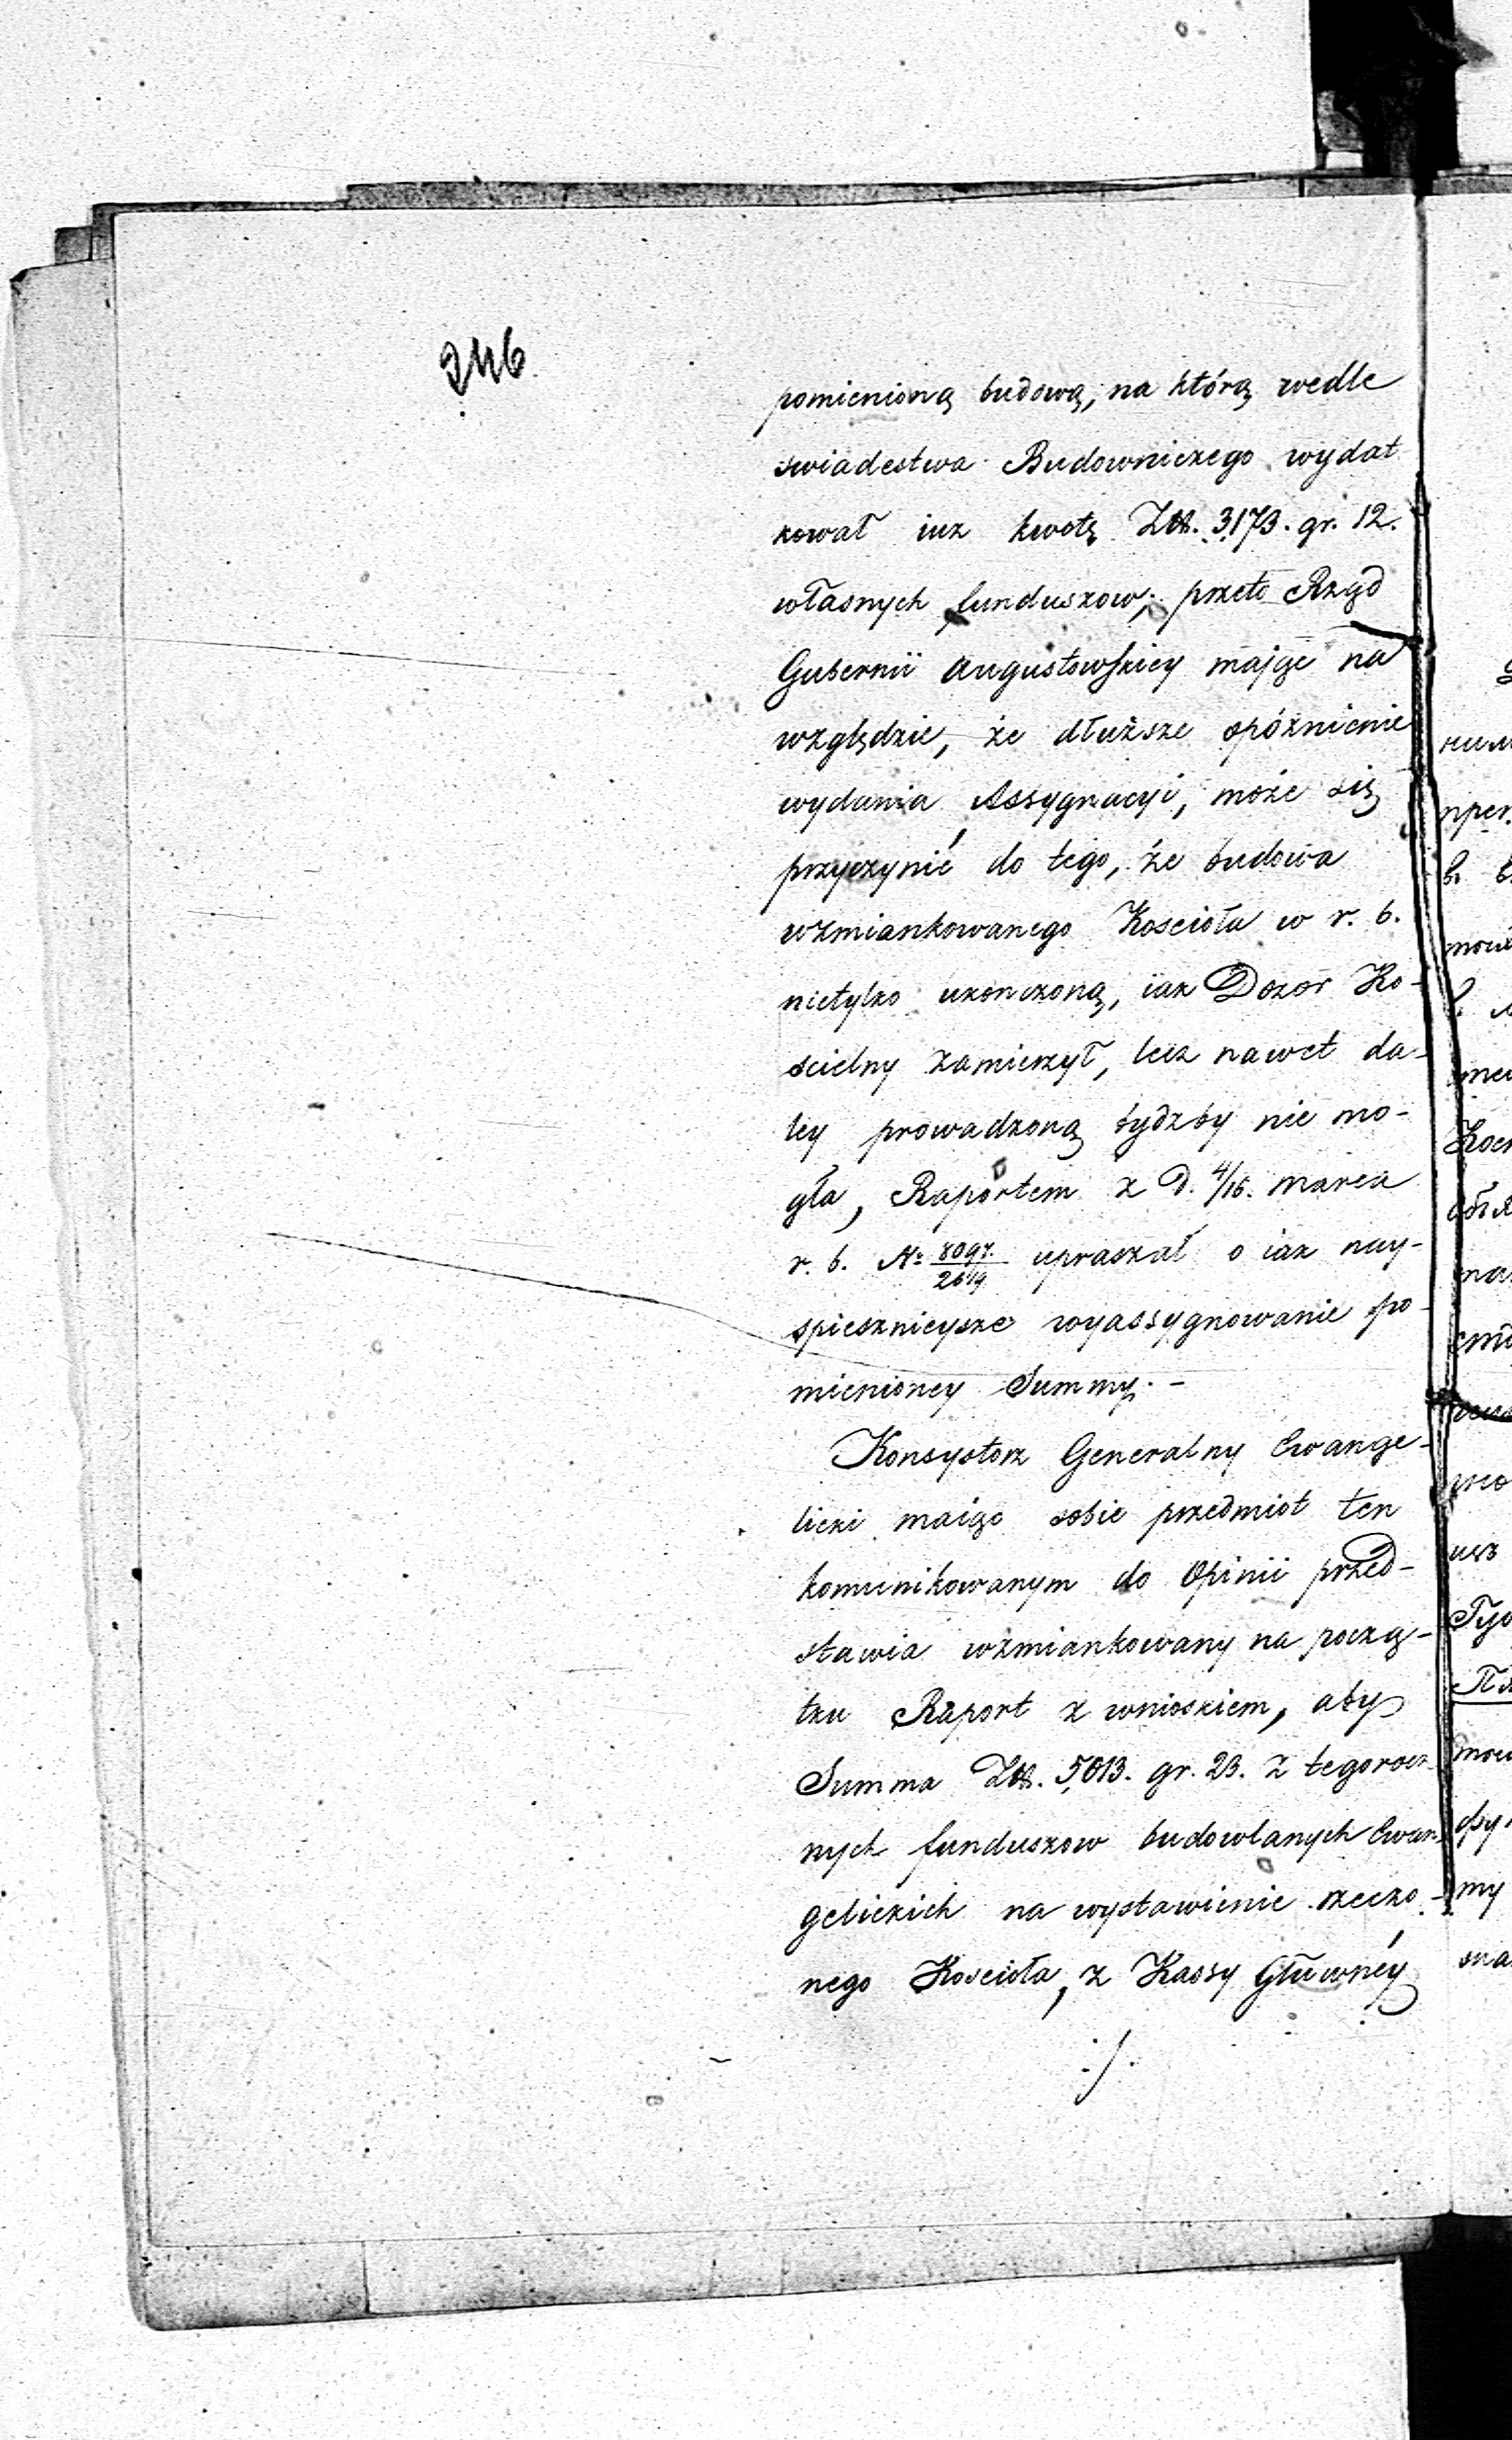 246
pomienioną budową, na którą wedle
swiadestwa Budowniczego wydat
kował iuz kwotę Złł. 3,173. gr. 12.
własnych funduszow; przeto Rząd
Gubernii Augustowskiey mając na
względzie, że dłuższe opóźnienie
wydania Assygnacyi, może się
przyczynić do tego, że budowa
wzmiankowanego Koscioła w r. b.
nietylko ukonczoną, iak Dozor Ko-
scielny zamierzył, lecz nawet da-
ley prowadzoną bydzby nie mo-
gła, Raportem z d. 4/16. marca
r. b. N: 8097./2619 upraszał o iak nay-
spiesznieysze wyassygnowanie po-
mienioney Summy. -
Konsystorz Generalny Ewange-
licki maiąc sobie przedmiot ten
komunikowanym do Opinii przed-
stawia wzmiankowany na począ-
tku Raport z wnioskiem, aby
Summa Złł. 5,013. gr. 23. z tegorocz-
nych funduszow budowlanych Ewan-
gelickich na wystawienie rzeczo-
nego Kosciola, z Kassy Główney
./.